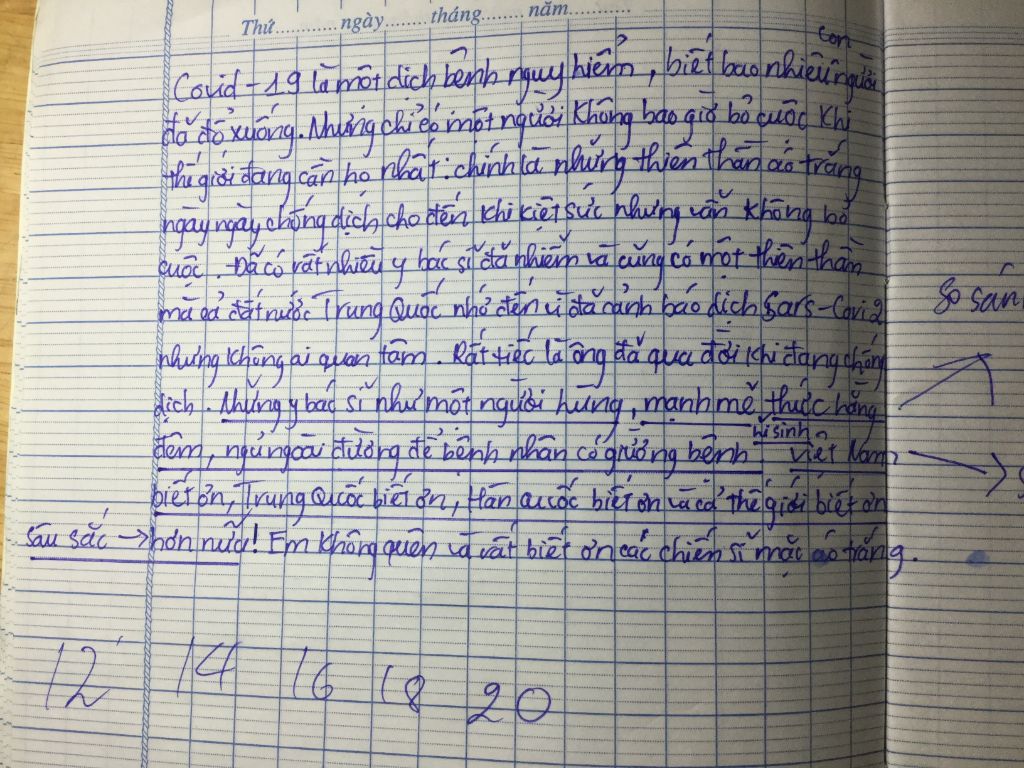 Thứ............ngày........tháng........năm............
con
Covid-19 là một dịch bệnh nguy hiểm, biết bao nhiêu người
đã đổ xuống. Nhưng chỉ có một người không bao giờ bỏ cuộc khi
thế giới đang cần họ nhất. chính là những thiên thần áo trắng
ngày ngày chống dịch cho đến khi kiệt sức nhưng vẫn không bỏ
cuộc. Đã có rất nhiều y bác sĩ đã nhiễm và cũng có một thiên thần
mà cả đất nước Trung Quốc nhớ đến vì đã cảnh báo dịch Sars-Covi2
nhưng không ai quan tâm. Rất tiếc là ông đã qua đời khi đang chống
dịch. Những y bác sĩ như một người hùng, mạnh mẽ thức hằng
đêm, ngủ ngoài đường để bệnh nhân có giường bệnh Việt Nam
hi sinh
biết ơn, Trung Quốc biết ơn, Hàn Quốc biết ơn và cả thế giới biết ơn
sâu sắc → hơn nữa! Em không quên và rất biết ơn các chiến sĩ mặc áo trắng.
So sán
12 14 16 18 20